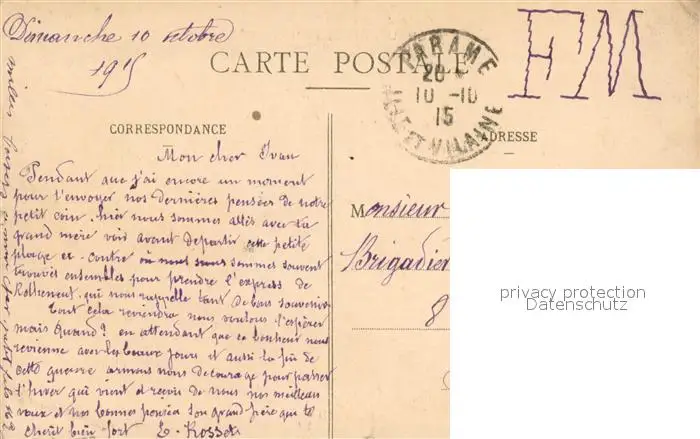 Dimanche 10 octobre
1915
CARTE POSTALE
FM
PARAMÉ
20
10 -10
15
ILLE-ET-VILAINE
CORRESPONDANCE
ADRESSE
Mon cher Ivan
Pendant que j'ai encore un moment
pour t'envoyer nos dernières pensées de notre
petit coin. hier nous sommes allés avec ta
grand mère voir avant de partir cette petite
plage et contre où nous nous sommes souvent
trouvés ensembles pour prendre l'express de
Rotheneuf, qui nous rappelle tant de bons souvenirs
Tout cela reviendra nous voulons l'espérer
mais quand? en attendant que ce bonheur nous
revienne avec les beaux jours et aussi la fin de
cette guerre armons nous de courage pour passer
l'hiver qui vient et reçois de nous nos meilleurs
vœux et nos bonnes pensées ton grand père qui te
chérit bien fort E. Rosset
Monsieur
Brigadier
8
privacy protection
Datenschutz